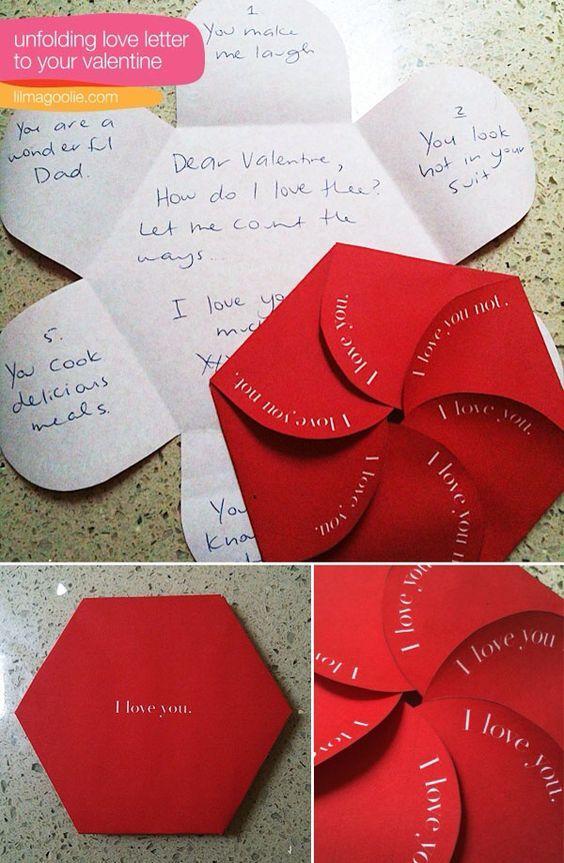 unfolding love letter
to your valentine
lilmagoolie.com
1
You make
me laugh
2
You look
hot in your
suit
You are a
wonderful
Dad.
Dear Valentine,
How do I love thee?
Let me count the
ways...
I love yo
much
xx
5.
You cook
delicious
meals.
You
Know
I love you.
I love you not.
I love you.
I love you n
I love you.
I love you not.
I love you.
I love you.
I love you
I love you
I love you.
I love you
I lov
I love